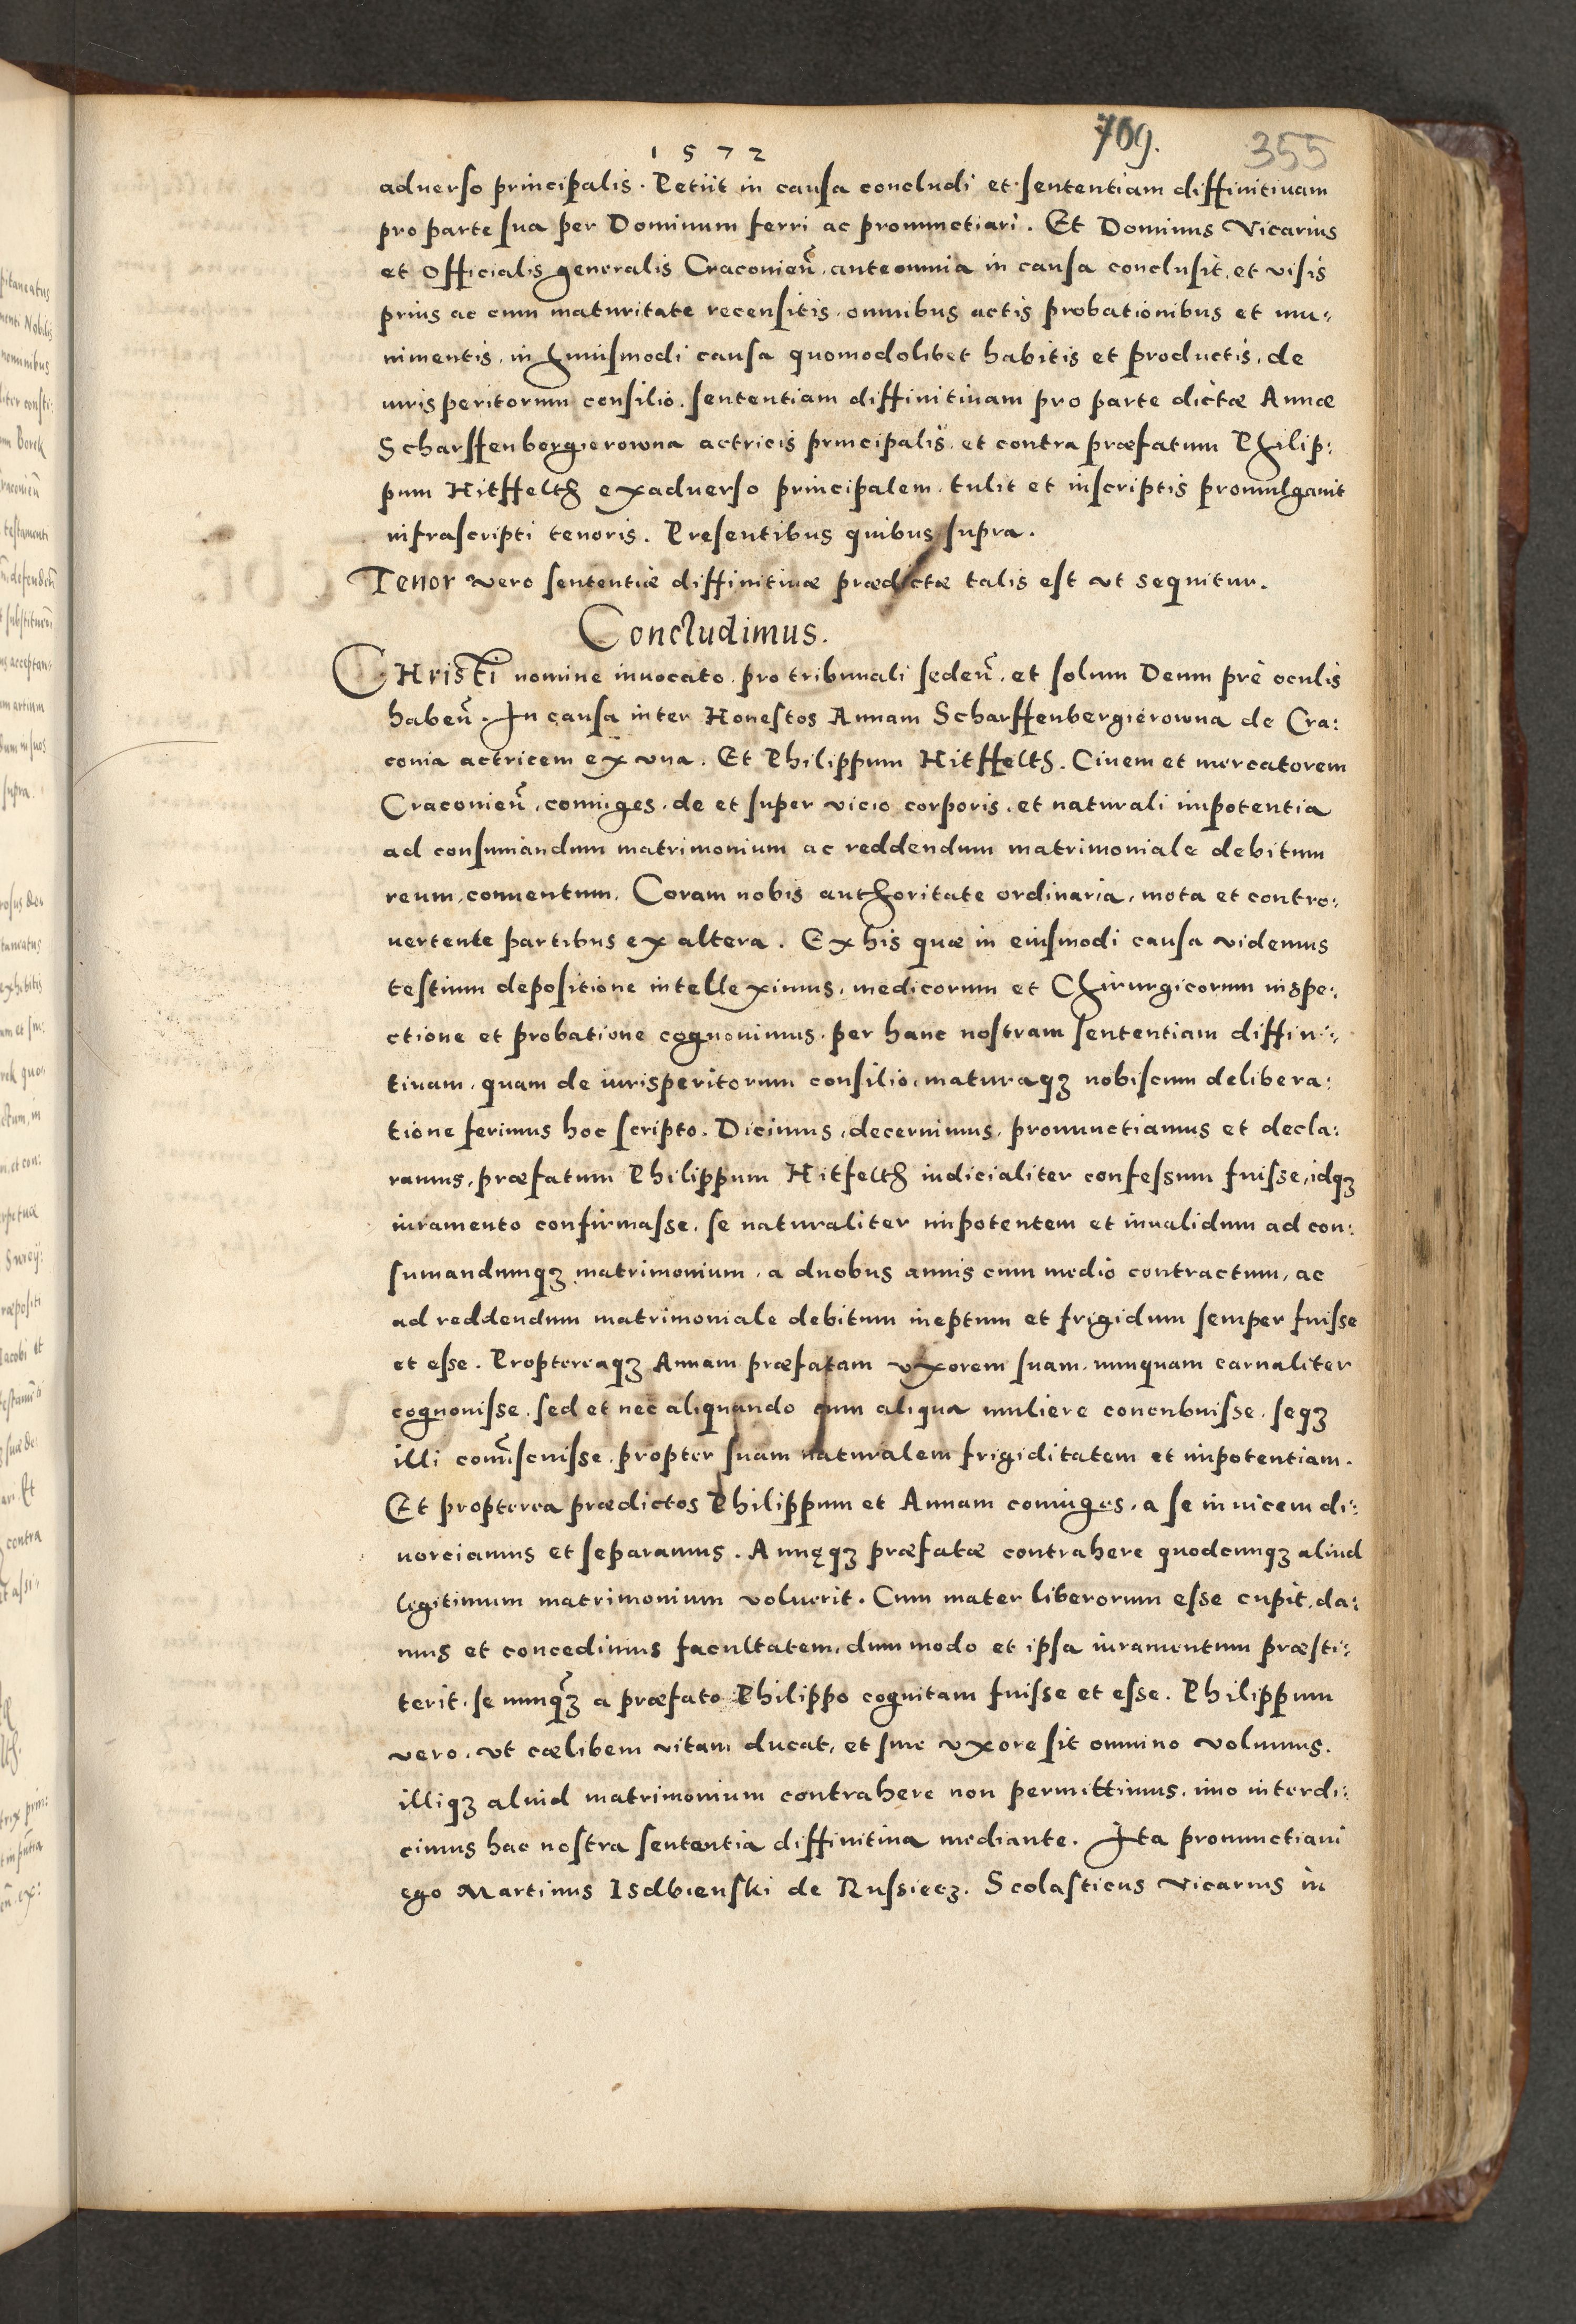 1572
709.
355
aduerso principalis. Petiit in causa concludi et sententiam diffinitiuam
pro parte sua per Dominum ferri ac pronunctiari. Et Dominus Vicarius
et Officialis generalis Cracovien̄. ante omnia in causa conclusit, et visis
prius ac cum maturitate recensitis omnibus actis probationibus et mu:
nimentis, in huiusmodi causa quomodolibet habitis et productis, de
iurisperitorum consilio. sententiam diffinitiuam pro parte dictæ Annæ
Scharffenbergierowna actricis principalis, et contra præfatum Philip:
pum Hitffelth exaduerso principalem, tulit et inscriptis promulgauit
infrascripti tenoris. Presentibus quibus supra.
Tenor vero sententiæ diffinitiuæ prædictæ talis est vt sequitur.
Concludimus.
CHristi nomine inuocato pro tribunali seden̄. et solum Deum prè oculis
haben̄. In causa inter Honestos Annam Scharffenbergierowna de Cra:
couia actricem ex vna. Et Philippum Hitffelth. Ciuem et mercatorem
Cracouien̄. coniuges, de et super vicio corporis, et naturali impotentia
ad consumandum matrimonium ac reddendum matrimoniale debitum
reum, conuentum, Coram nobis authoritate ordinaria, mota et contro:
uertente partibus ex altera. Ex his quæ in eiusmodi causa videmus
testium depositione intelleximus, medicorum et Chirurgicorum inspe:
ctione et probatione cognouimus, per hanc nostram sententiam diffini:
tiuam, quam de iurisperitorum consilio, maturaqꝫ nobiscum delibera:
tione ferimus hoc scripto. Dicimus, decernimus, pronunctiamus et decla:
ramus, præfatum Philippum Hitfelth iudicialiter confessum fuisse, idqꝫ
iuramento confirmasse, se naturaliter impotentem et inualidum ad con:
sumandumqꝫ matrimonium, a duobus annis cum medio contractum, ac
ad reddendum matrimoniale debitum ineptum et frigidum semper fuisse
et esse. Proptereaqꝫ Annam præfatam vxorem suam, nunquam carnaliter
cognouisse, sed et nec aliquando cum aliqua muliere concubuisse, seqꝫ
illi com̄scuisse, propter suam naturalem frigiditatem et impotentiam.
Et propterea prædictos Philippum et Annam coniuges, a se inuicem di:
uorciamus et separamus. Annęqꝫ præfatæ contrahere quodcunqꝫ aliud
legitimum matrimonium voluerit. Cum mater liberorum esse cupit, da:
mus et concedimus facultatem, dum modo et ipsa iuramentum præsti:
terit, se nunqꝫ̄ a præfato Philippo cognitam fuisse et esse. Philippum
vero, vt cælibem vitam ducat, et sine vxore sit omnino volumus.
illiqꝫ aliud matrimonium contrahere non permittimus, imo interdi:
cimus hac nostra sententia diffinitiua mediante. Ita pronunctiaui
ego Martinus Isdbienski de Russiecz. Scolasticus Vicarius in